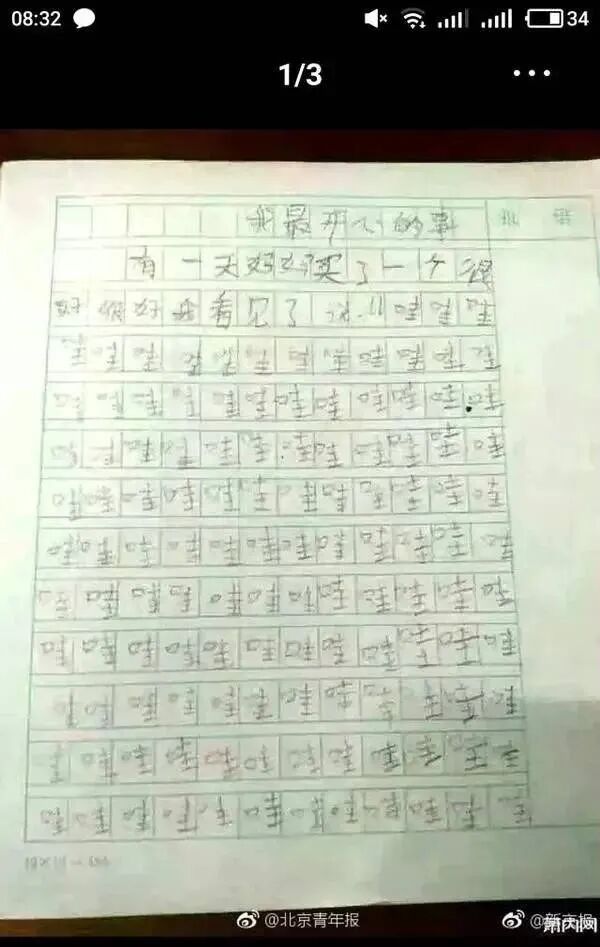 08:32 34
1/3
我最开心的事 批语
有一天妈妈买了一个很
看见了 !! 哇哇哇
哇哇哇哇哇哇哇哇哇哇哇哇
哇哇哇哇哇哇哇哇哇哇哇哇
哇哇哇哇哇哇哇哇哇哇哇哇
哇哇哇哇哇哇哇哇哇哇哇哇
哇哇哇哇哇哇哇哇哇哇哇哇
哇哇哇哇哇哇哇哇哇哇哇哇
哇哇哇哇哇哇哇哇哇哇哇哇
哇哇哇哇哇哇哇哇哇哇哇哇
哇哇哇哇哇哇哇哇哇哇哇哇
哇哇哇哇哇哇哇哇哇哇哇哇
@北京青年报